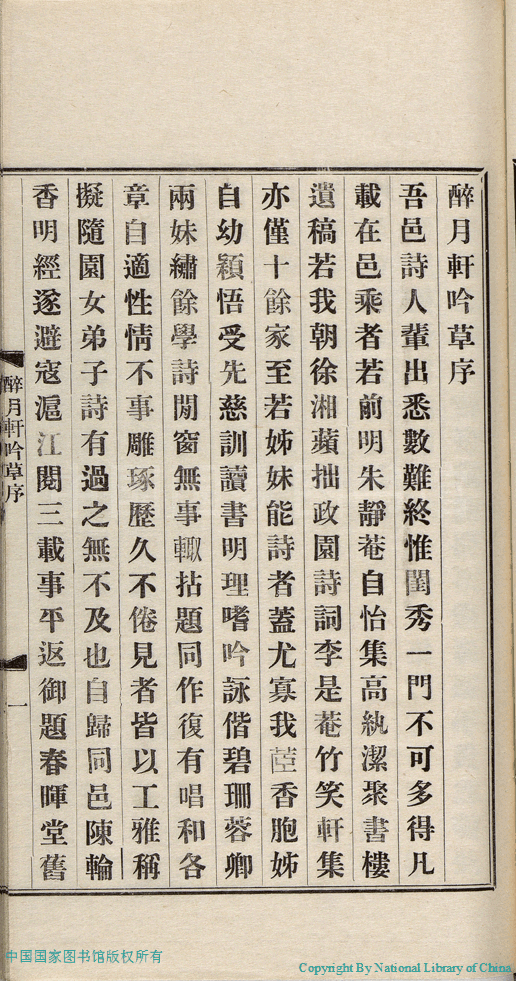 醉月軒吟草序
吾邑詩人輩出悉數難終惟閨秀一門不可多得凡
載在邑乘者若前明朱靜菴自怡集高紈潔聚書樓
遺稿若我朝徐湘蘋拙政園詩詞李是菴竹笑軒集
亦僅十餘家至若姊妹能詩者蓋尤寡我茝香胞姊
自幼穎悟受先慈訓讀書明理嗜吟詠偕碧珊蓉卿
兩妹繡餘學詩閒窗無事輙拈題同作復有唱和各
章自適性情不事雕琢歷久不倦見者皆以工雅稱
擬隨園女弟子詩有過之無不及也自歸同邑陳輪
香明經遂避寇滬江閱三載事平返御題春暉堂舊
醉月軒吟草序
一
中国国家图书馆版权所有
Copyright By National Library of China